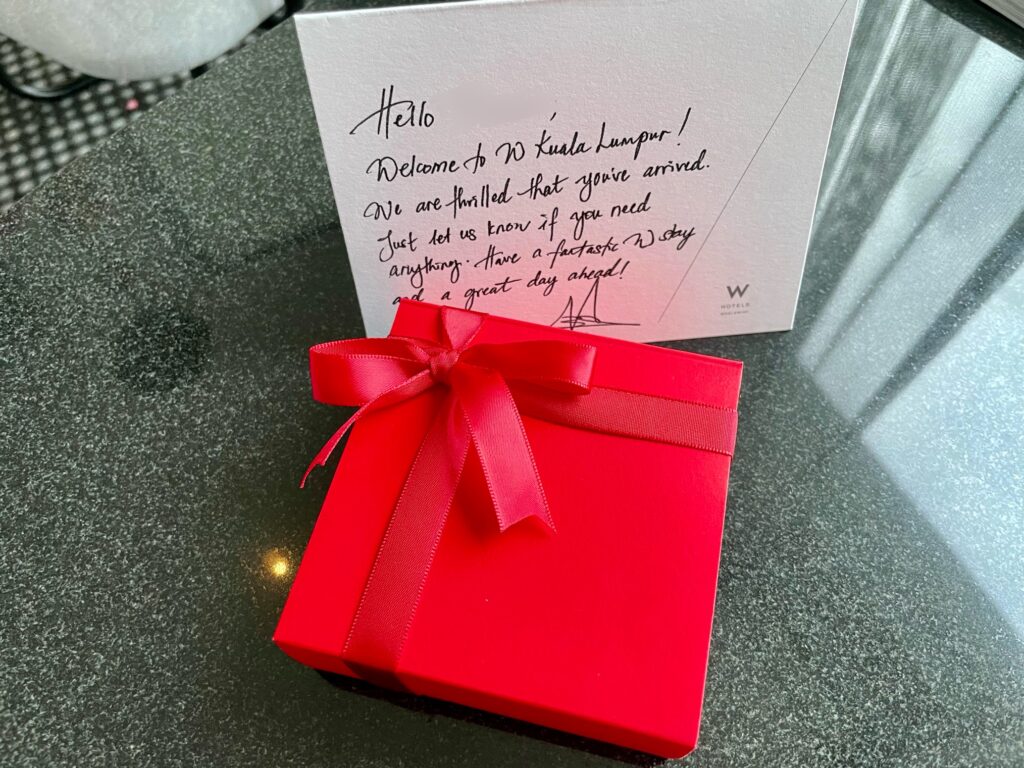 Hello ,
Welcome to W Kuala Lumpur!
We are thrilled that you've arrived.
Just let us know if you need
anything. Have a fantastic W stay
and a great day ahead!
W
HOTELS
WORLDWIDE